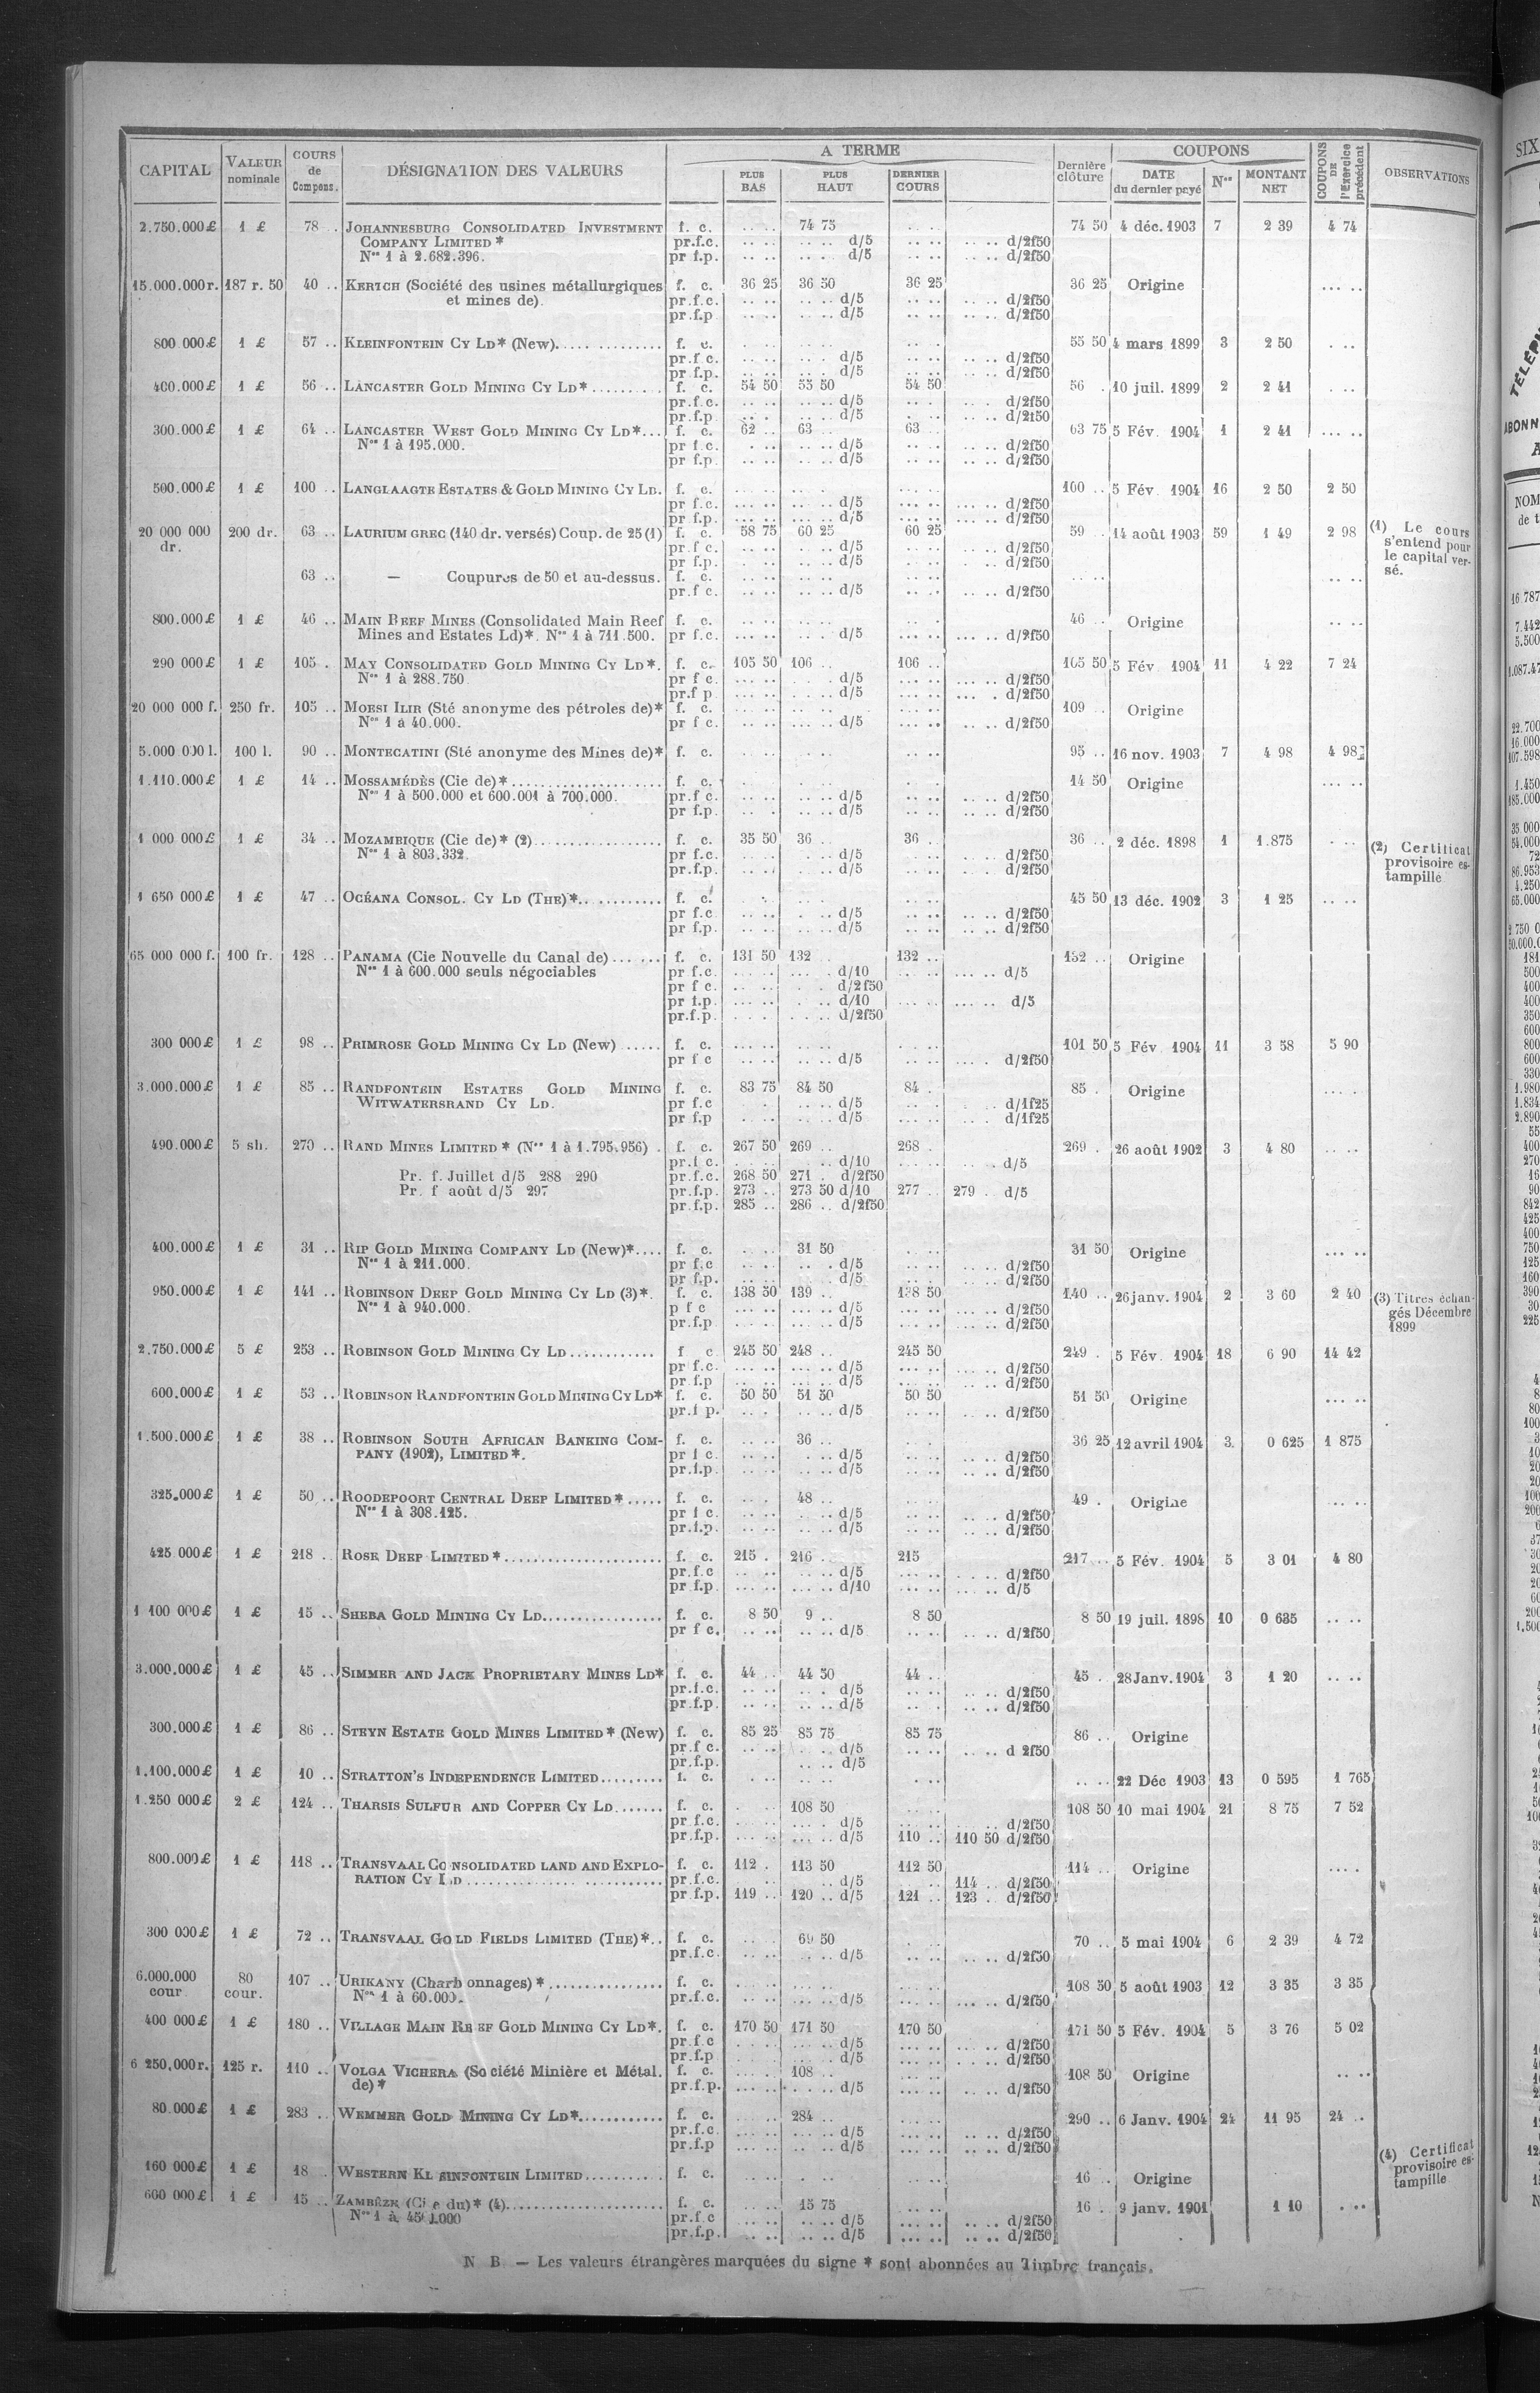 CAPITAL VALEUR nominale COURS de Compens. DÉSIGNATION DES VALEURS A TERME PLUS BAS PLUS HAUT DERNIER COURS Dernière clôture COUPONS DATE du dernier payé Nos MONTANT NET COUPONS DE l'Exercice précédent OBSERVATIONS
2.750.000£ 1 £ 78 .. JOHANNESBURG CONSOLIDATED INVESTMENT f. c. 74 75 74 50 4 déc. 1903 7 2 39 4 74
COMPANY LIMITED * pr.f.c. d/5 d/2f50
Nos 1 à 2.682.396. pr f.p. d/5 d/2f50
15.000.000r. 187 r. 50 40 .. KERTCH (Société des usines métallurgiques f. c. 36 25 36 50 36 25 36 25 Origine .... ..
et mines de). pr.f.c. d/5 d/2f50
pr.f.p d/5 d/2f50
800.000£ 1 £ 57 .. KLEINFONTEIN CY LD* (New). f. c. 55 50 4 mars 1899 3 2 50
pr.f c. d/5 d/2f50
pr f.p. d/5 d/2f50
400.000£ 1 £ 56 .. LANCASTER GOLD MINING CY LD* f. c. 54 50 55 50 54 50 56 . 10 juil. 1899 2 2 41
pr.f.c. d/5 d/2f50
pr.f.p d/5 d/2f50
300.000£ 1 £ 64 .. LANCASTER WEST GOLD MINING CY LD*... f. c. 62 .. 63 63 .. 63 75 5 Fév. 1904 1 2 41 .... ..
Nos 1 à 195.000. pr f.c. d/5 d/2f50
pr f.p. d/5 d/2f50
500.000£ 1 £ 100 .. LANGLAAGTE ESTATES & GOLD MINING CY LD. f. c. 100 .. 5 Fév. 1904 16 2 50 2 50
pr f.c. d/5 d/2f50
pr f.p. d/5 d/2f50
20 000 000 dr. 200 dr. 63 .. LAURIUM GREC (140 dr. versés) Coup. de 25 (1) f. c. 58 75 60 25 60 25 59 . 14 août 1903 59 1 49 2 98 (1) Le cours s'entend pour le capital versé.
pr.f c. d/5 d/2f50
pr f.p. d/5 d/2f50
63 .. — Coupures de 50 et au-dessus. f. c.
pr.f c. d/5 d/2f50
800.000£ 1 £ 46 .. MAIN REEF MINES (Consolidated Main Reef f. c. 46 .. Origine
Mines and Estates Ld)*. Nos 1 à 711.500. pr f.c. d/5 d/2f50
290 000£ 1 £ 105 . MAY CONSOLIDATED GOLD MINING CY LD*. f. c. 105 50 106 .. 106 .. 105 50 5 Fév 1904 11 4 22 7 24
Nos 1 à 288.750. pr f c d/5 d/2f50
pr.f p d/5 d/2f50
20 000 000 f. 250 fr. 105 .. MOESI ILIR (Sté anonyme des pétroles de)* f. c. 109 . Origine
Nos 1 à 40.000. pr f c. d/5 d/2f50
5.000 000 l. 100 l. 90 .. MONTECATINI (Sté anonyme des Mines de)* f. c. 95 .. 16 nov. 1903 7 4 98 4 98
1.110.000£ 1 £ 14 .. MOSSAMÉDÈS (Cie de)* f. c. 14 50 Origine
Nos 1 à 500.000 et 600.001 à 700.000. pr.f c. d/5 d/2f50
pr f.p. d/5 d/2f50
1 000 000£ 1 £ 34 .. MOZAMBIQUE (Cie de)* (2) f. c. 35 50 36 36 . 36 .. 2 déc. 1898 1 1.875 (2) Certificat provisoire estampillé
Nos 1 à 803.332. pr f.c. d/5 d/2f50
pr.f.p. d/5 d/2f50
1 650 000£ 1 £ 47 .. OCÉANA CONSOL. CY LD (THE)* f. c. 45 50 13 déc. 1902 3 1 25
pr f.c d/5 d/2f50
pr f.p. d/5 d/2f50
65 000 000 f. 100 fr. 128 .. PANAMA (Cie Nouvelle du Canal de) f. c. 131 50 132 132 .. 132 .. Origine
Nos 1 à 600.000 seuls négociables pr f.c. d/10 d/5
pr f c. d/2f50
pr f.p. d/10 d/5
pr.f.p. d/2f50
300 000£ 1 £ 98 .. PRIMROSE GOLD MINING CY LD (New) f. c. 101 50 5 Fév 1904 11 3 58 5 90
pr f c d/5 d/2f50
3.000.000£ 1 £ 85 .. RANDFONTEIN ESTATES GOLD MINING f. c. 83 75 84 50 84 . 85 . Origine
WITWATERSRAND CY LD. pr f.c d/5 d/1f25
pr f.p d/5 d/1f25
490.000£ 5 sh. 270 .. RAND MINES LIMITED * (Nos 1 à 1.795.956) . f. c. 267 50 269 .. 268 . 269 . 26 août 1902 3 4 80
pr.f c. d/10 d/5
Pr. f. Juillet d/5 288 290 pr.f.c. 268 50 271 . d/2f50
Pr. f août d/5 297 pr.f.p. 273 .. 273 50 d/10 277 .. 279 . d/5
pr.f.p. 285 .. 286 .. d/2f50
400.000£ 1 £ 31 .. RIP GOLD MINING COMPANY LD (New)*.... f. c. 31 50 31 50 Origine
Nos 1 à 211.000. pr f.c d/5 d/2f50
pr f.p. d/5 d/2f50
950.000£ 1 £ 141 .. ROBINSON DEEP GOLD MINING CY LD (3)*. f. c. 138 50 139 .. 138 50 140 .. 26 janv. 1904 2 3 60 2 40 (3) Titres échangés Décembre 1899
Nos 1 à 940.000. p f c d/5 d/2f50
pr.f.p d/5 d/2f50
2.750.000£ 5 £ 253 .. ROBINSON GOLD MINING CY LD f c 245 50 248 .. 245 50 249 . 5 Fév. 1904 18 6 90 14 42
pr f.c. d/5 d/2f50
pr f.p d/5 d/2f50
600.000£ 1 £ 53 .. ROBINSON RANDFONTEIN GOLD MINING CY LD* f. c. 50 50 51 50 50 50 51 50 Origine
pr.f p. d/5 d/2f50
1.500.000£ 1 £ 38 .. ROBINSON SOUTH AFRICAN BANKING COM- f. c. 36 .. 36 25 12 avril 1904 3. 0 625 1 875
PANY (1902), LIMITED *. pr f c. d/5 d/2f50
pr.f.p. d/5 d/2f50
325.000£ 1 £ 50 .. ROODEPOORT CENTRAL DEEP LIMITED * f. c. 48 .. 49 . Origine
Nos 1 à 308.125. pr f c. d/5 d/2f50
pr.f.p. d/5 d/2f50
425 000£ 1 £ 218 . ROSE DEEP LIMITED * f. c. 215 . 216 . 215 217 .. 5 Fév. 1904 5 3 01 4 80
pr.f.c d/5 d/2f50
pr f.p. d/10 d/5
1 100 000£ 1 £ 15 .. SHEBA GOLD MINING CY LD f. c. 8 50 9 .. 8 50 8 50 19 juil. 1898 10 0 635
pr f c. d/5 d/2f50
3.000.000£ 1 £ 45 .. SIMMER AND JACK PROPRIETARY MINES LD* f. c. 44 .. 44 50 44 .. 45 .. 28 Janv. 1904 3 1 20
pr.f.c. d/5 d/2f50
pr f.p d/5 d/2f50
300.000£ 1 £ 86 .. STEYN ESTATE GOLD MINES LIMITED * (New) f. c. 85 25 85 75 85 75 86 .. Origine
pr.f c. d/5 d 2f50
pr.f.p. d/5
1.100.000£ 1 £ 10 .. STRATTON'S INDEPENDENCE LIMITED f. c. 22 Déc 1903 13 0 595 1 765
1.250 000£ 2 £ 124 .. THARSIS SULFUR AND COPPER CY LD f. c. 108 50 108 50 10 mai 1904 21 8 75 7 52
pr f.c. d/5 d/2f50
pr.f.p. d/5 110 .. 110 50 d/2f50
800.000£ 1 £ 118 .. TRANSVAAL CONSOLIDATED LAND AND EXPLO- f. c. 112 . 113 50 112 50 114 .. Origine
RATION CY LD pr.f.c. d/5 114 .. d/2f50
pr f.p. 119 .. 120 .. d/5 121 .. 123 .. d/2f50
300 000£ 1 £ 72 .. TRANSVAAL GOLD FIELDS LIMITED (THE)*.. f. c. 69 50 70 .. 5 mai 1904 6 2 39 4 72
pr.f.c. d/5 d/2f50
6.000.000 cour. 80 cour. 107 .. URIKANY (Charbonnages) * f. c. 108 50 5 août 1903 12 3 35 3 35
Nos 1 à 60.000. pr.f.c. d/5 d/2f50
400 000£ 1 £ 180 .. VILLAGE MAIN REEF GOLD MINING CY LD*. f. c. 170 50 171 50 170 50 171 50 5 Fév. 1904 5 3 76 5 02
pr.f c d/5 d/2f50
pr.f.p d/5 d/2f50
6 250,000r. 125 r. 110 .. VOLGA VICHERA (Société Minière et Métal. f. c. 108 .. 108 50 Origine
de) * pr.f.p. d/5 d/2f50
80.000£ 1 £ 283 .. WEMMER GOLD MINING CY LD* f. c. 284 .. 290 .. 6 Janv. 1904 24 11 95 24 ..
pr.f.c. d/5 d/2f50
pr.f.p d/5 d/2f50
160 000£ 1 £ 18 . WESTERN KLEINFONTEIN LIMITED f. c. 16 . Origine
600 000£ 1 £ 15 .. ZAMBÈZE (Cie du)* (4) f. c. 15 75 16 . 9 janv. 1901 1 10 (4) Certificat provisoire estampille
Nos 1 à 450.000 pr.f c d/5 d/2f50
pr.f.p. d/5 d/2f50
N B — Les valeurs étrangères marquées du signe * sont abonnées au Timbre français.